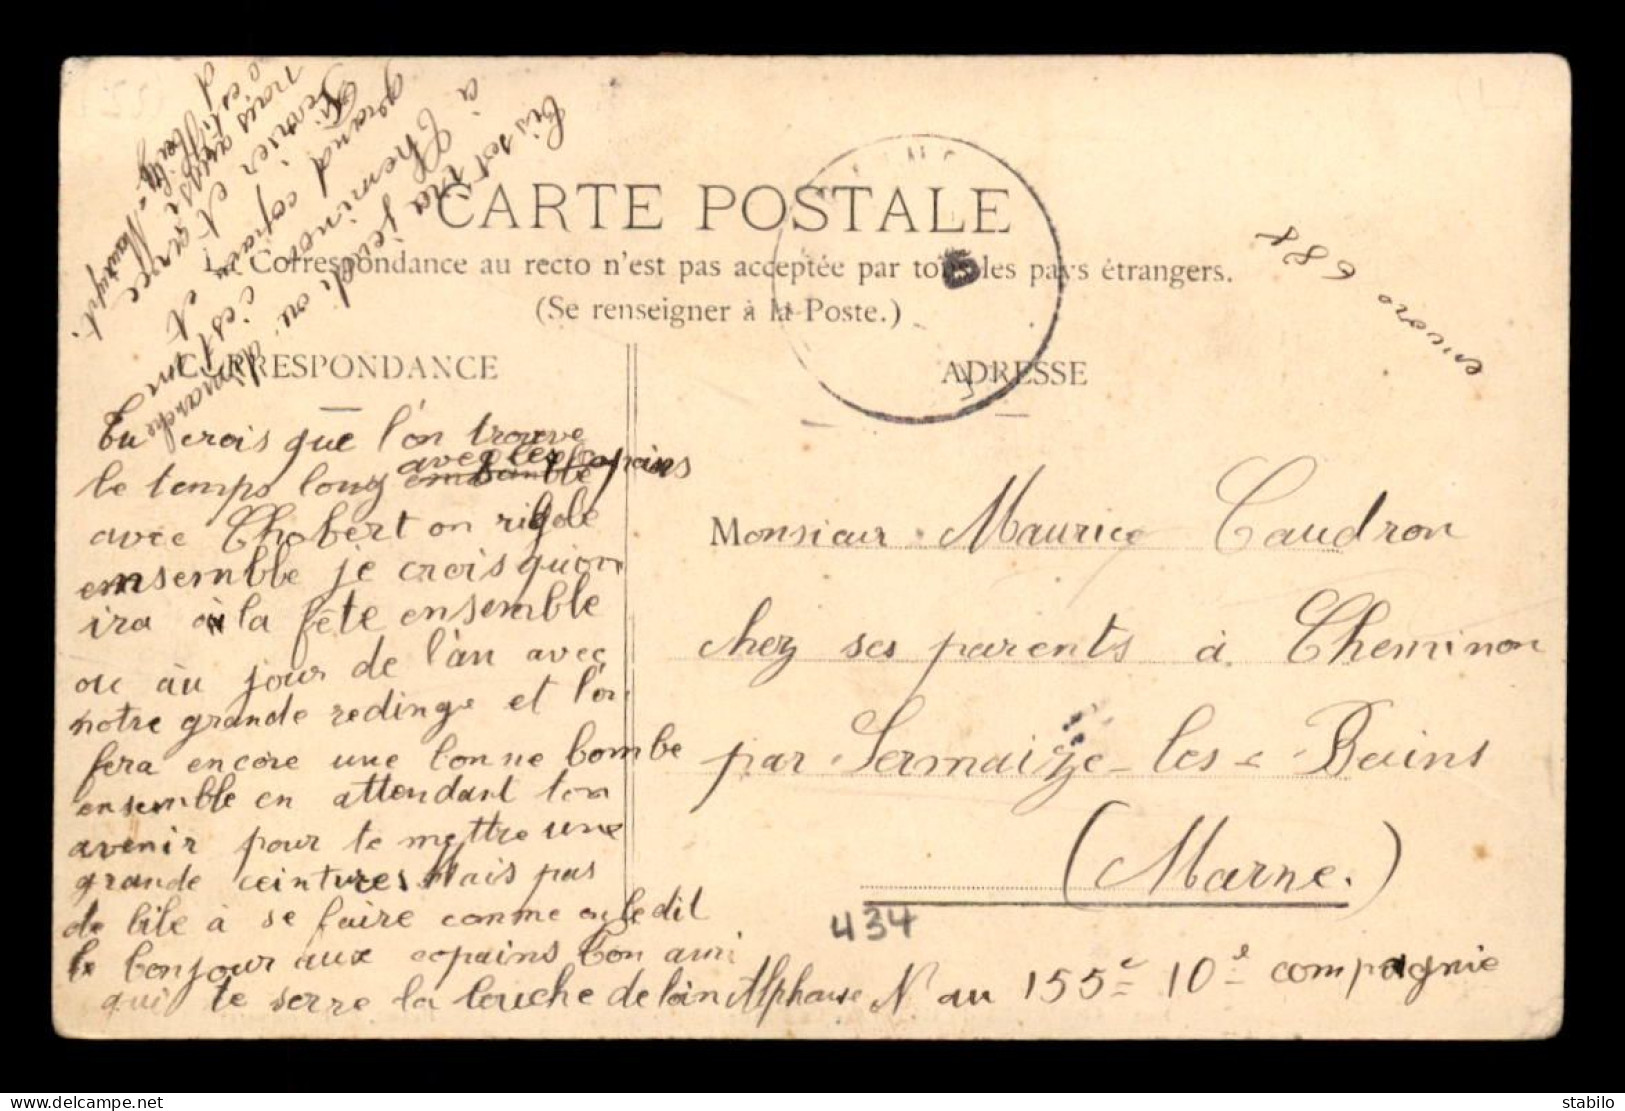 CARTE POSTALE
La Correspondance au recto n'est pas acceptée par tous les pays étrangers.
(Se renseigner à la Poste.)
CORRESPONDANCE
ADRESSE
Tu crois que l'on trouve
le temps long avec les copains
avec Thobert on rigole
ensemble je crois qu'on
ira à la fête ensemble
ou au jour de l'an avec
notre grande redinge et l'on
fera encore une bonne bombe
ensemble en attendant ton
avenir pour te mettre une
grande ceintures Mais pas
de bile à se faire comme on le dit
le bonjour aux copains ton ami
qui te serre la louche de loin Alphonse N. au 155e 10e compagnie
à Cheminon
grand copain et
Février et c'est
mais aussi avec
dimanche
jeudi ou
encore 688
Monsieur Maurice Caudron
chez ses parents à Cheminon
par Sermaize-les-Bains
(Marne.)
434
stabilo